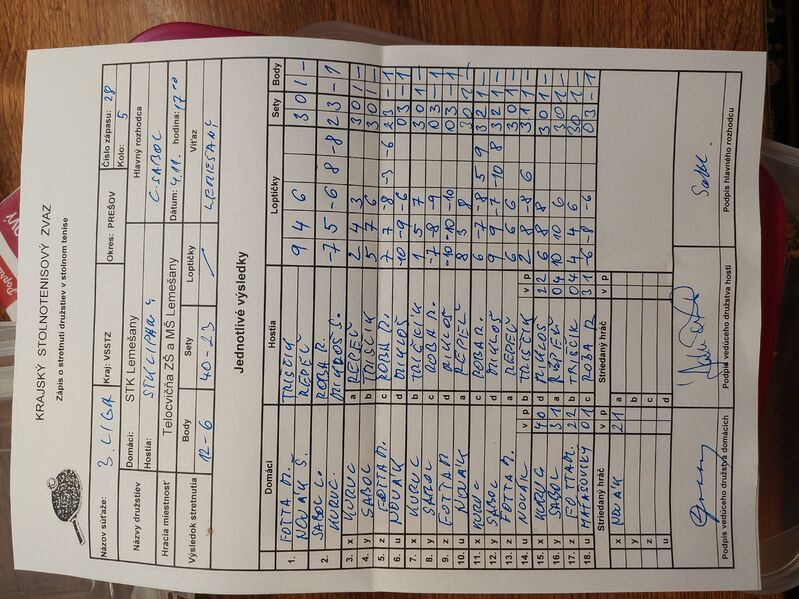 KRAJSKÝ STOLNOTENISOVÝ ZVAZ
Zápis o stretnutí družstiev v stolnom tenise
Názov súťaže: 3. LIGA Kraj: VSSTZ Okres: PREŠOV Číslo zápasu: 28
Kolo: 5
Názvy družstiev Domáci: STK Lemešany Hlavný rozhodca
Hostia: STK LIPANY C. SABOL
Hracia miestnosť Telocvičňa ZŠ a MŠ Lemešany Dátum: 4.11. hodina: 17 00
Výsledok stretnutia Body Sety Loptičky Víťaz
12-6 40-23 / LEMEŠANY
Jednotlivé výsledky
Domáci Hostia Loptičky Sety Body
1. FOTTA M. TRIŠČÍK 9 4 6 3 0 1 -
NOVAK Š. REPEĽ
2. SABOL C. ROBA R. -7 5 -6 8 -8 2 3 - 1
KURUC MIKLOŠ S.
3. x KURUC a REPEĽ 2 4 3 3 0 1 -
4. y SABOL b TRIŠČÍK 5 7 6 3 0 1 -
5. z FOTTA M. c ROBA R. 7 7 -8 -3 -6 2 3 - 1
6. u NOVAK d MIKLOŠ -10 -9 -6 0 3 - 1
7. x KURUC b TRIŠČÍK 1 5 7 3 0 1 -
8. y SABOL c ROBA R. -7 -8 -9 0 3 - 1
9. z FOTTA M d MIKLOŠ -10 -10 -10 0 3 - 1
10. u NOVAK a REPEĽ 8 3 8 3 0 1 -
11. x KURUC c ROBA R. 6 -7 -8 5 9 3 2 1 -
12. y SABOL d MIKLOŠ 9 9 -7 -10 8 3 2 1 -
13. z FOTTA M. a REPEĽ 6 6 6 3 0 1 -
14. u NOVAK v p b TRIŠČÍK v p 2 8 -8 6 3 1 1 -
15. x KURUC 4 0 d MIKLOŠ 2 2 6 8 8 3 0 1 -
16. y SABOL 3 1 a REPEĽ 0 4 10 10 6 3 0 1 -
17. z FOTTA M. 2 2 b TRIŠČÍK 0 4 4 4 6 3 0 1 -
18. u MAŤAŠOVSKÝ 0 1 c ROBA R 3 1 -6 -8 -6 0 3 - 1
Striedaný hráč v p Striedaný hráč v p
x NOVAK 2 1 a
y b
z c
u d
Podpis vedúceho družstva domácich Podpis vedúceho družstva hostí Podpis hlavného rozhodcu
Sabol